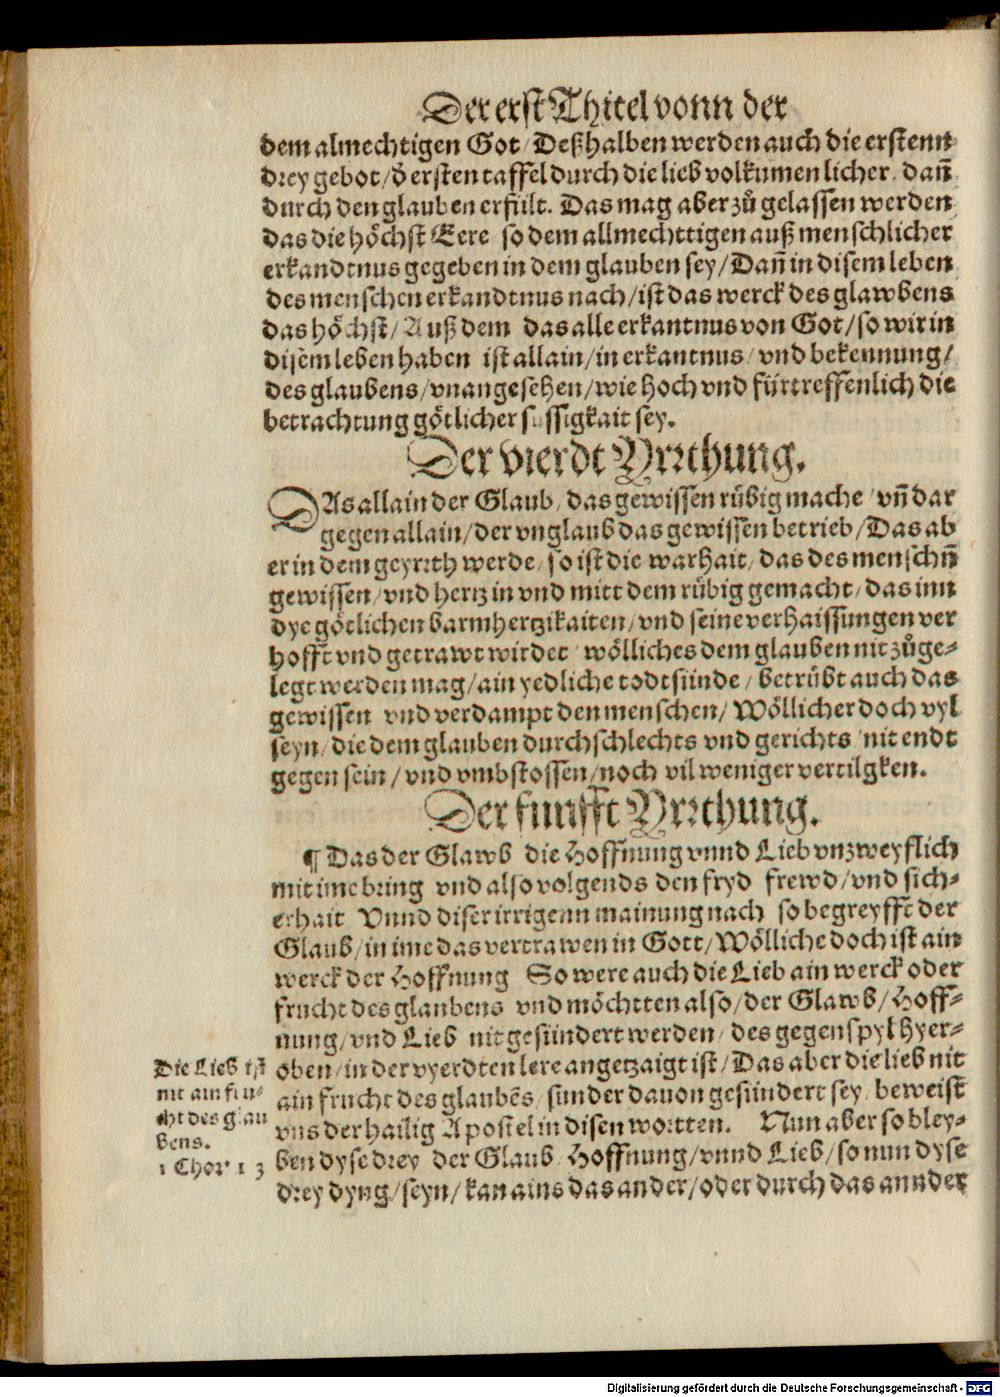 Der erst Thitel vonn der
dem almechtigen Got/ Deßhalben werden auch die erstenn
drey gebot/ d̛ ersten taffel durch die lieb volkumenlicher, dañ
durch den glauben erfült. Das mag aber zů gelassen werden
das die höchst Eere so dem allmechttigen auß menschlicher
erkandtnus gegeben in dem glauben sey/ Dañ in disem leben
des menschen erkandtnus nach/ ist das werck des glawbens
das höchst/ Auß dem das alle erkantnus von Got/ so wir in
disem leben haben ist allain/ in erkantnus/ vnd bekennung/
des glaubens/ vnangesehen/ wie hoch vnd fürtreffenlich die
betrachtung götlicher sussigkait sey.
Der vierdt Yrrthung.
DAs allain der Glaub/ das gewissen rübig mache/ vñ dar
gegen allain/ der vnglaub das gewissen betrieb/ Das ab
er in dem geyrrth werde/ so ist die warhait/ das des menschñ
gewissen/ vnd hertz in vnd mitt dem rübig gemacht/ das inn
dye götlichen barmhertzikaiten/ vnd seine verhaissungen ver
hofft vnd getrawt wirdet/ wölliches dem glauben nit zůge-
legt werden mag/ ain yedliche todtsünde/ betrübt auch das
gewissen vnd verdampt den menschen/ Wöllicher doch vyl
seyn/ die dem glauben durchschlechts vnd gerichts/ nit endt
gegen sein/ vnd vmbstossen/ noch vil weniger vertilgken.
Der funfft Yrrthung.
¶ Das der Glawb die Hoffnung vnnd Lieb vnzweyflich
mit ime bring vnd also volgends den fryd frewd/ vnd sich-
erhait Vnnd diser irrigenn mainung nach so begreyfft der
Glaub/ in ime das vertrawen in Gott/ Wölliche doch ist ain
werck der Hoffnung So were auch die Lieb ain werck oder
frucht des glaubens vnd möchtten also/ der Glawb/ Hoff-
nung/ vnd Lieb nit gesündert werden/ des gegenspyl hyer-
oben/ in der vyerdten lere angetzaigt ist/ Das aber die lieb nit
ain frucht des glaubēs/ sunder dauon gesündert sey/ beweist
vns der hailig Apostel in disen wortten. Nun aber so bley-
ben dyse drey der Glaub/ Hoffnung/ vnnd Lieb/ so nun dyse
drey dyng/ seyn/ kan ains das ander/ oder durch das annder
Die Lieb ist
nit ain fru-
cht des glau
bens.
1 Chor 13
Digitalisierung gefördert durch die Deutsche Forschungsgemeinschaft - DFG